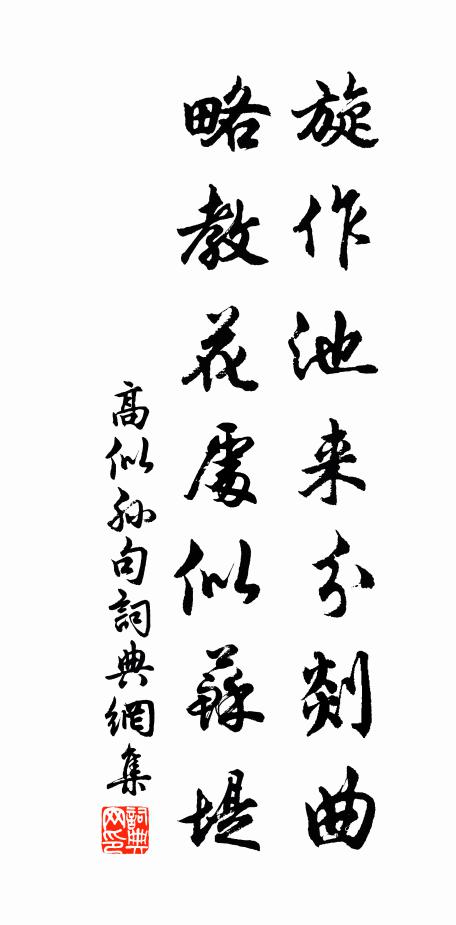 旋作池来分剡曲
略教花處似蘇堤
高似孙句詞典網集
詞典网印